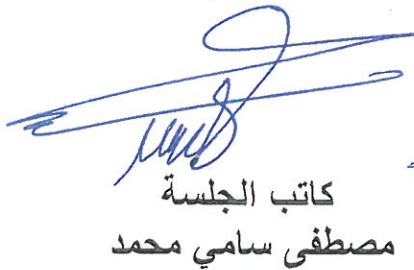 كاتب الجلسة
مصطفى سامي محمد